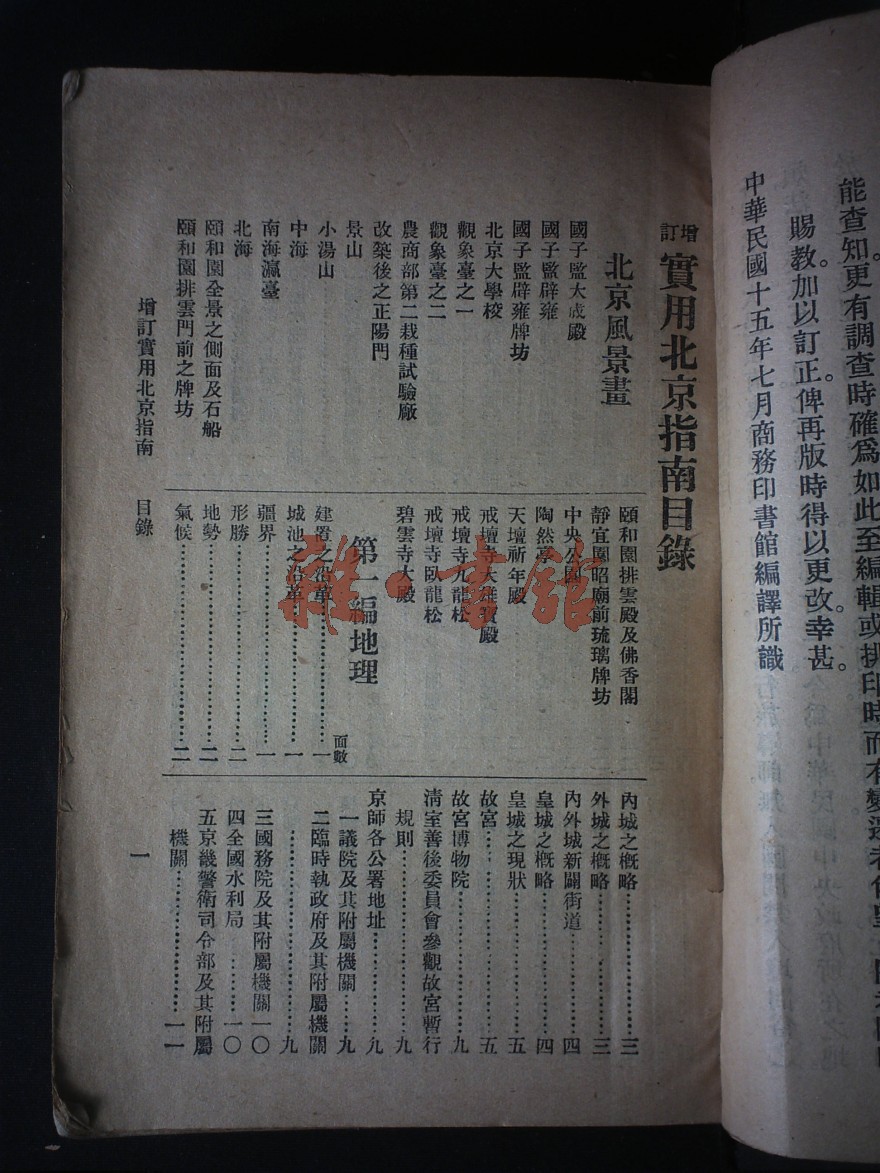 能查知。更有調查時確爲如此至編輯或排印時而有變遷者
賜教。加以訂正。俾再版時得以更改。幸甚。
中華民國十五年七月商務印書館編譯所識
增訂實用北京指南目錄
北京風景畫
國子監大成殿
國子監辟雍
國子監辟雍牌坊
北京大學校
觀象臺之一
觀象臺之二
農商部第二栽種試驗廠
改築後之正陽門
景山
小湯山
中海
南海瀛臺
北海
頤和園全景之側面及石船
頤和園排雲門前之牌坊
頤和園排雲殿及佛香閣
靜宜園昭廟前琉璃牌坊
中央公園
陶然亭
天壇祈年殿
戒壇寺大雄寶殿
戒壇寺九龍松
戒壇寺臥龍松
碧雲寺大殿
第一編地理
面數
建置之沿革……一
城池之沿革……一
疆界……一
形勝……二
地勢……二
氣候……二
內城之概略……三
外城之概略……三
內外城新闢街道……四
皇城之概略……四
皇城之現狀……五
故宮……五
故宮博物院……九
清室善後委員會參觀故宮暫行
規則……九
京師各公署地址……九
一議院及其附屬機關……九
二臨時執政府及其附屬機關
……九
三國務院及其附屬機關一〇
四全國水利局……一〇
五京畿警衛司令部及其附屬
機關……一一
增訂實用北京指南 目錄
一
雜·書館